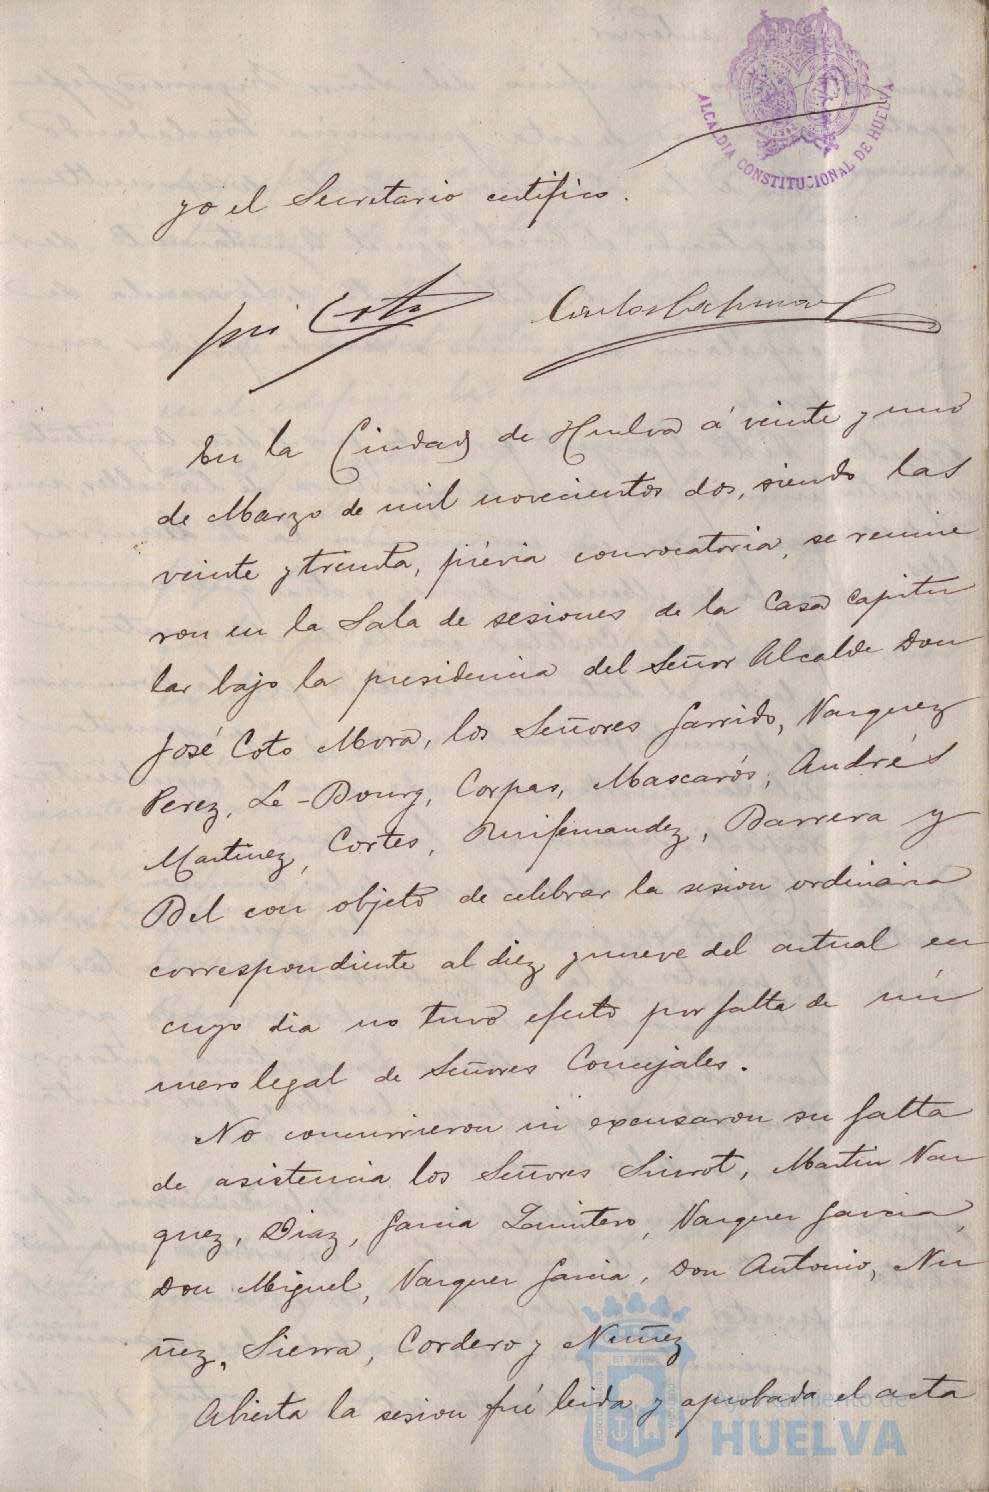 ALCALDIA CONSTITUCIONAL DE HUELVA
yo el Secretario certifico.
José Coto
En la Ciudad de Huelva á veinte y uno
de Marzo de mil novecientos dos, siendo las
veinte y treinta, prévia convocatoria, se reunie
ron en la Sala de sesiones de la Casa Capitu
lar bajo la presidencia del Señor Alcalde Don
José Coto Mora, los Señores Garrido, Vazquez
Perez, Le-Bourg, Corpas, Mascarós, Andrés
Martinez, Cortes, Ruifernandez, Barrera y
Bel con objeto de celebrar la sesion ordinaria
correspondiente al diez y nueve del actual en
cuyo dia no tuvo efecto por falta de nú
mero legal de Señores Concejales.
No concurrieron ni excusaron su falta
de asistencia los Señores Siurot, Martin Vaz
quez, Diaz, Garcia Quintero, Vazquez Garcia,
Don Miguel, Vazquez Garcia, Don Antonio, Nu
ñez, Sierra, Cordero y Nuñez
Abierta la sesion fué leida y aprobada el acta
Ayuntamiento de
HUELVA